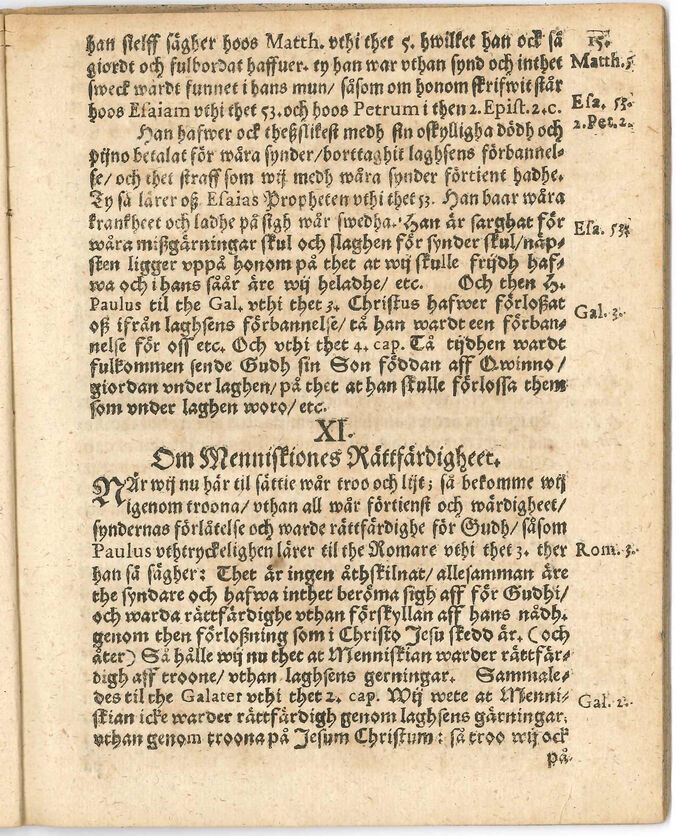 han sielff sägher hoos Matth. vthi thet 5. hwilket han ock så
giordt och fulbordat haffuer. ty han war vthan synd och inthet
sweck wardt funnet i hans mun/ såsom om honom skrifwit står
hoos Esaiam vthi thet 53. och hoos Petrum i then 2. Epist. 2. c.
Han hafwer ock theßslikest medh sin oskylligha dödh och
pijno betalat för wåra synder/borttaghit laghsens förbannel-
se/ och thet straff som wij medh wåra synder förtient hadhe.
Ty så lärer oß Esaias Propheten vthi thet 53. Han baar wåra
kranckheet och ladhe på sigh wår swedha. Han är sarghat för
wåra mißgärningar skul och slaghen för synder skul/näp-
sten ligger vppå honom på thet at wij skulle frijdh haf-
wa och i hans såår äre wij heladhe/ etc. Och then H.
Paulus til the Gal. vthi thet 3. Christus hafwer förloßat
oß ifrån laghsens förbannelse/ tå han wardt een förban-
nelse för oss etc. Och vthi thet 4. cap. Tå tijdhen wardt
fulkommen sende Gudh sin Son föddan aff Qwinno/
giordan vnder laghen/ på thet at han skulle förlossa them
som vnder laghen woro/ etc.
XI.
Om Menniskiones Rättfärdigheet.
NÄr wij nu här til sättie wår troo och lijt; så bekomme wij
igenom troona/ vthan all wår förtienst och wärdigheet/
syndernas förlåtelse och warde rättfärdighe för Gudh/ såsom
Paulus vthtryckelighen lärer til the Romare vthi thet 3. ther
han så sägher: Thet är ingen åthskilnat/ allesamman äre
the syndare och hafwa inthet berömma sigh aff för Gudhi/
och warda rättfärdighe vthan förskyllan aff hans nådh.
genom then förloßning som i Christo Jesu skedd är. (och
åter) Så hålle wij nu thet at Menniskian warder rättfär-
digh aff troone/ vthan laghsens gerningar. Sammale-
des til the Galater vthi thet 2. cap. Wij wete at Menni-
skian icke warder rättfärdigh genom laghsens gärningar.
vthan genom troona på Jesum Christum: så troo wij ock
på
15.
Matth. 5
Esa. 53.
2. Pet. 2.
Esa. 53.
Gal. 3.
Rom. 3.
Gal. 2.